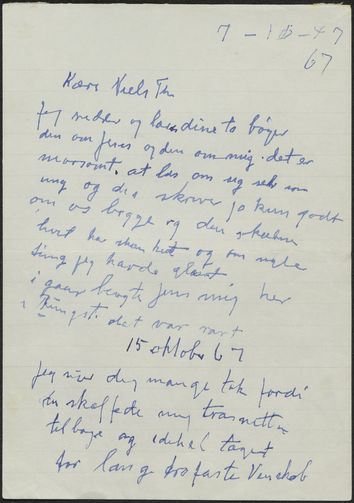 7 - 10 - 47
67
Kære Niels Th
Jeg sidder og læser dine to bøger
den om Jens og den om mig. det er
morsomt. at læse om sig selv som
ung og du skriver jo kun godt
om os begge og den
hvil har skan og om nogle
ting jeg havde glemt
i gaar besøgte Jens mig her
i Rungst. det var rart
15 oktober 67
jeg siger dig mange tak fordi
du skaffede mig træsnittene
tilbage og idehel taget
for lang trofaste Venskab